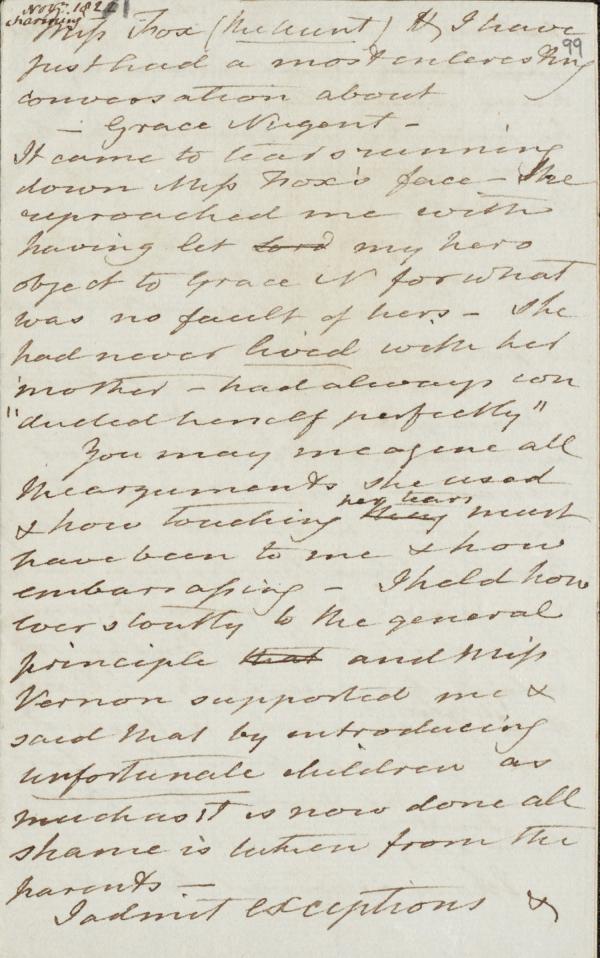 Novr. 1821
charming
99
Miss Fox (the aunt) & I have
just had a most interesting
conversation about
– Grace Nugent –
It came to tears running
down Miss Fox's face – She
reproached me with
having let Lord my hero
object to Grace N for what
was no fault of hers – She
had never lived with her
mother – had always con
"ducted herself perfectly"
You may imagine all
the arguments she used
her tears
& how touching they must
have been to me & how
embarrassing – I held how
ever stoutly to the general
principle that and Miss
Vernon supported me &
said that by introducing
unfortunate children as
much as it is now done all
shame is taken from the
parents –
I admit exceptions &